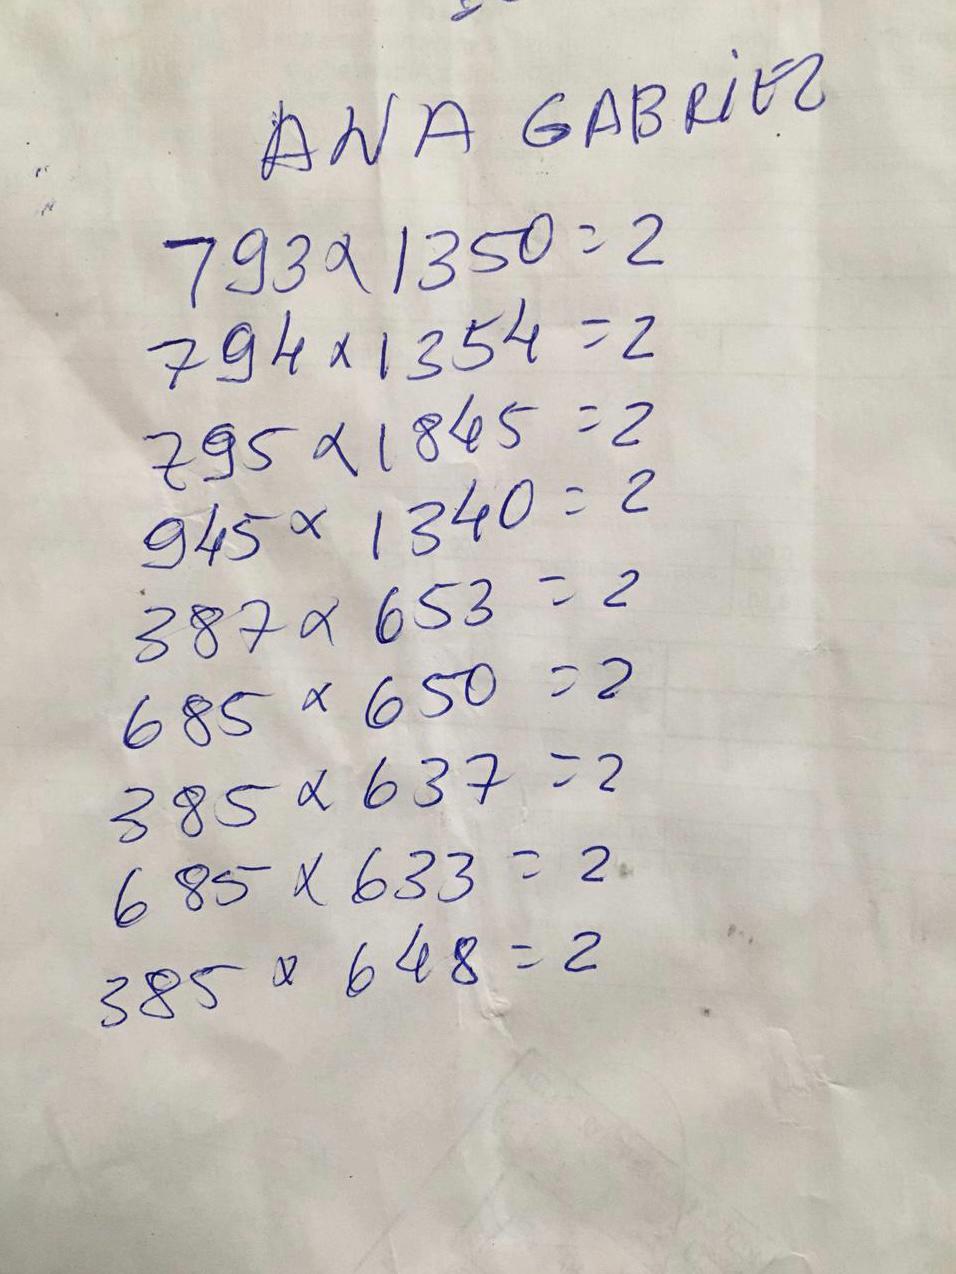 ANA GABRIEL
793 x 1350 = 2
794 x 1354 = 2
795 x 1845 = 2
945 x 1340 = 2
387 x 653 = 2
685 x 650 = 2
385 x 637 = 2
685 x 633 = 2
385 x 648 = 2